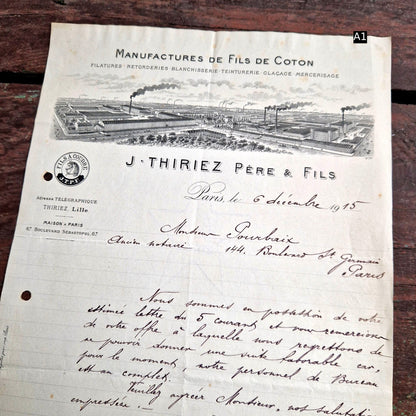 A1
MANUFACTURES DE FILS DE COTON
FILATURES - RETORDERIES - BLANCHISSERIE - TEINTURERIE - GLAÇAGE - MERCERISAGE
J. THIRIEZ PÈRE & FILS
Paris, le 6 décembre 1915
FILS À COUDRE
J.T.P.F.
ADRESSE TÉLÉGRAPHIQUE
THIRIEZ, Lille
MAISON À PARIS
67, BOULEVARD SÉBASTOPOL, 67
Monsieur Pourbaix
Ancien notaire
144, Boulevard St Germain
Paris
Nous sommes en possession de votre
estimée lettre du 5 courant et vous remercions
de votre offre à laquelle nous regrettons de
ne pouvoir donner une suite favorable car,
pour le moment, notre personnel de Bureau
est au complet.
Veuillez agréer Monsieur, nos salutations
empressées.